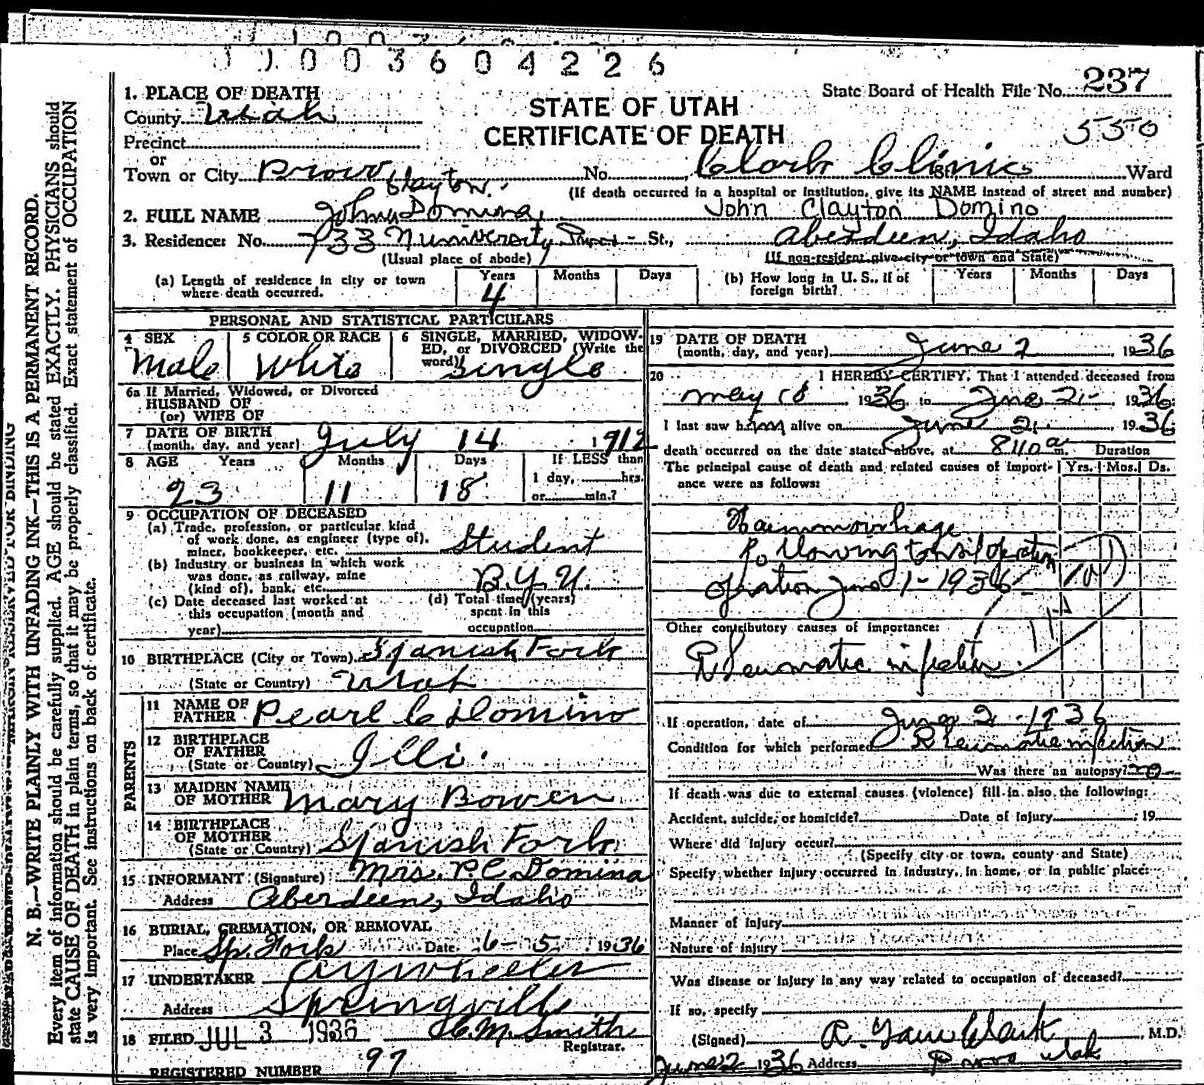 1003604226
State Board of Health File No. 237
550
STATE OF UTAH
CERTIFICATE OF DEATH
1. PLACE OF DEATH
County Utah
Precinct
or
Town or City Provo No. Clark Clinic St., Ward
(If death occurred in a hospital or institution, give its NAME instead of street and number)
Clayton
2. FULL NAME John Domina, John Clayton Domino
3. Residence: No. 733 N University Provo St., Aberdeen, Idaho
(Usual place of abode) (If non-resident give city or town and State)
(a) Length of residence in city or town where death occurred. Years 4 Months Days
(b) How long in U. S., if of foreign birth? Years Months Days
PERSONAL AND STATISTICAL PARTICULARS
4 SEX Male
5 COLOR OR RACE White
6 SINGLE, MARRIED, WIDOWED, or DIVORCED (Write the word) Single
6a If Married, Widowed, or Divorced
HUSBAND OF
(or) WIFE OF
7 DATE OF BIRTH
(month, day, and year) July 14 1912
8 AGE Years 23 Months 11 Days 18
If LESS than
1 day, hrs.
or min.?
9 OCCUPATION OF DECEASED
(a) Trade, profession, or particular kind
of work done, as engineer (type of),
miner, bookkeeper, etc. Student
(b) Industry or business in which work
was done, as railway, mine
(kind of), bank, etc. B.Y.U.
(c) Date deceased last worked at
this occupation (month and
year)
(d) Total time (years)
spent in this
occupation
10 BIRTHPLACE (City or Town) Spanish Fork
(State or Country) Utah
PARENTS
11 NAME OF
FATHER Pearl C Domino
12 BIRTHPLACE
OF FATHER
(State or Country) Illi.
13 MAIDEN NAME
OF MOTHER Mary Bowen
14 BIRTHPLACE
OF MOTHER
(State or Country) Spanish Fork
15 INFORMANT (Signature) Mrs. P. C. Domina
Address Aberdeen, Idaho
16 BURIAL, CREMATION, OR REMOVAL
Place Sp. Fork Date 6-5 1936
17 UNDERTAKER A Y Wheeler
Address Springville
18 FILED JUL 3 1936 Smith
Registrar.
REGISTERED NUMBER 97
19 DATE OF DEATH
(month, day, and year) June 2, 1936
20 I HEREBY CERTIFY, That I attended deceased from
May 18 1936 to June 2 1936
I last saw him alive on June 2 1936
death occurred on the date stated above, at 8:10 a m. Duration
The principal cause of death and related causes of importance were as follows: Yrs. Mos. Ds.
Haemmorrhage
Following tonsil operation
operation June 1-1936
Other contributory causes of importance:
Rheumatic infection
If operation, date of June 2 - 1936
Condition for which performed Rheumatic infection
Was there an autopsy? no
If death was due to external causes (violence) fill in also the following:
Accident, suicide, or homicide? Date of injury 19
Where did injury occur?
(Specify city or town, county and State)
Specify whether injury occurred in industry, in home, or in public place:
Manner of injury
Nature of injury
Was disease or injury in any way related to occupation of deceased?
If so, specify
(Signed) Clark, M.D.
June 2 1936 Address Provo Utah
N. B.—WRITE PLAINLY WITH UNFADING INK—THIS IS A PERMANENT RECORD.
Every item of information should be carefully supplied. AGE should be stated EXACTLY. PHYSICIANS should
state CAUSE OF DEATH in plain terms, so that it may be properly classified. Exact statement of OCCUPATION
is very important. See instructions on back of certificate.